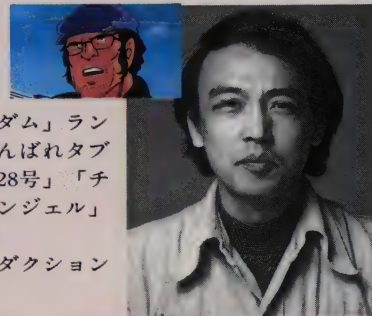 ダム」ラン
んばれタブ
28号」「チ
ンジェル」
ダクション